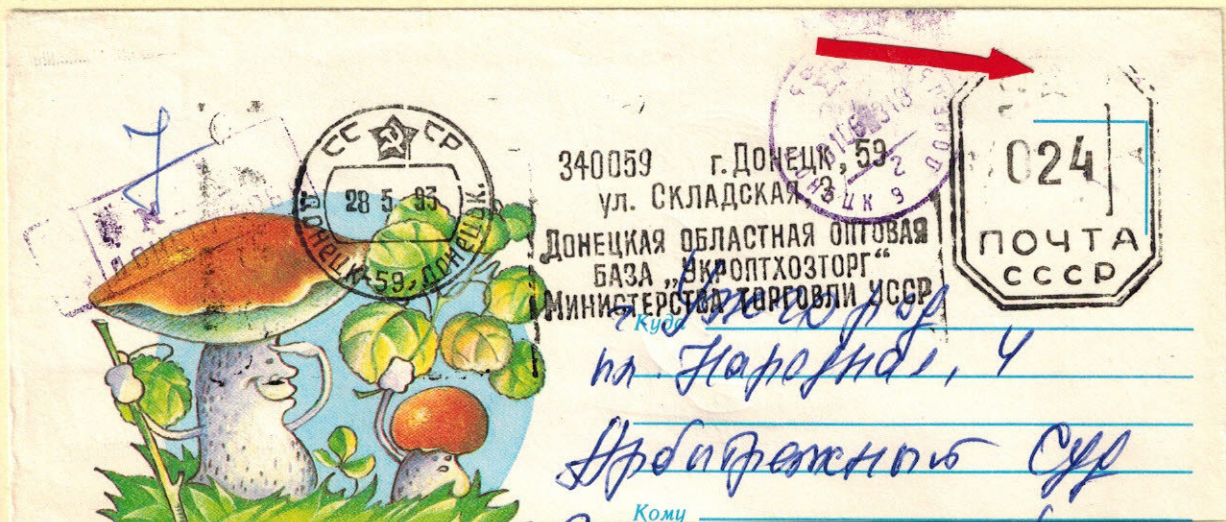 СССР
28 5 - 93
Донецк-59, Донецк.
340059 г. ДОНЕЦК, 59
ул. СКЛАДСКАЯ, 3
ДОНЕЦКАЯ ОБЛАСТНАЯ ОПТОВАЯ
БАЗА „УКРОПТХОЗТОРГ“
МИНИСТЕРСТВА ТОРГОВЛИ УССР
024
ПОЧТА
СССР
Куда г. Ужгород
пл. Народная, 4
Арбитражный Суд
Кому